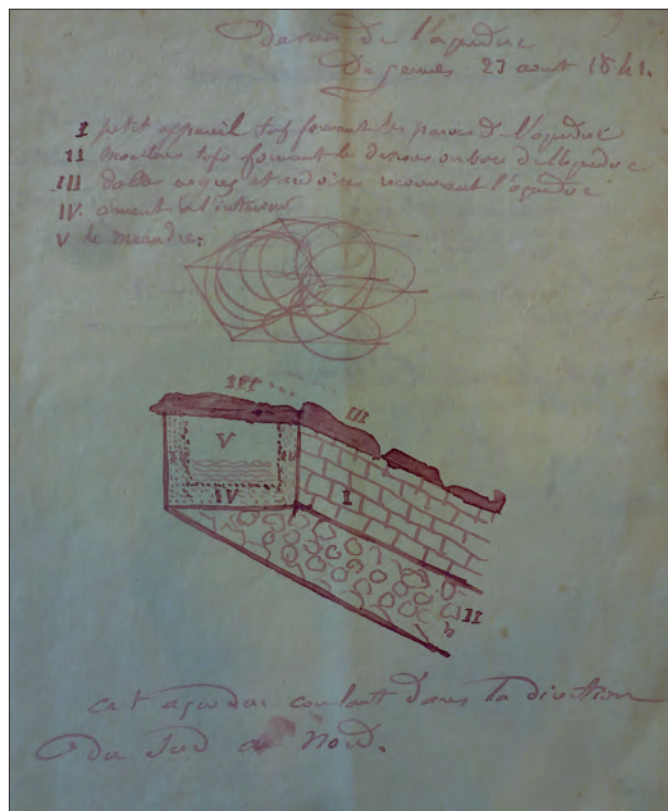 dessin de l'aqueduc
De gennes 27 aout 1841.
I petit appareil tuf formant les parois de l'aqueduc
II moellons tufs formant le dessous ou base de l'aqueduc
III dalles et ardoises recouvrant l'aqueduc
IV. ciment à l'interieur
V le meandre.
III
III
V
IV
I
II
cet aqueduc coulant dans la direction
du Sud au Nord.